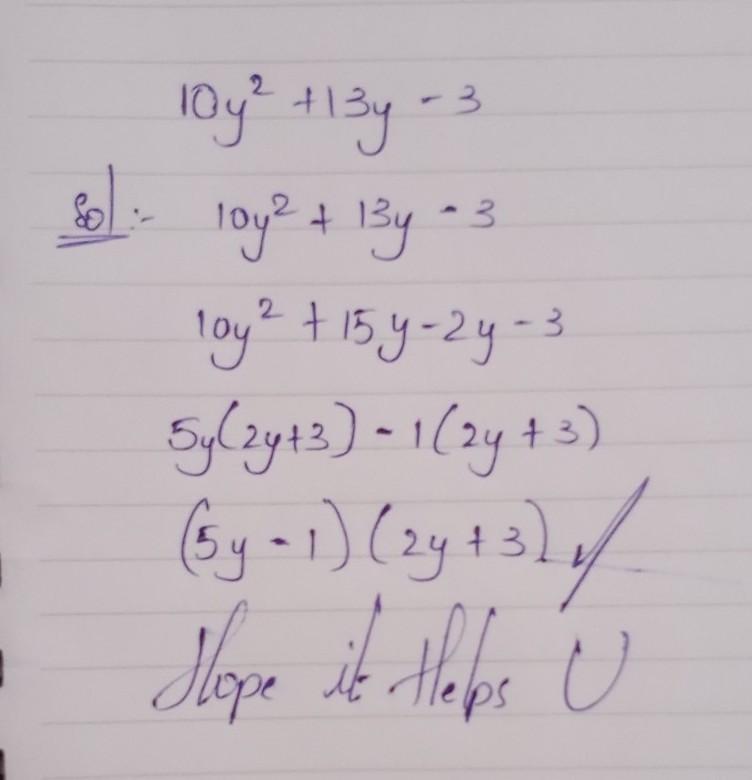 10y² + 13y - 3
Sol:- 10y² + 13y - 3
10y² + 15y - 2y - 3
5y(2y+3) - 1(2y + 3)
(5y - 1) (2y + 3) ✓
Hope it Helps U